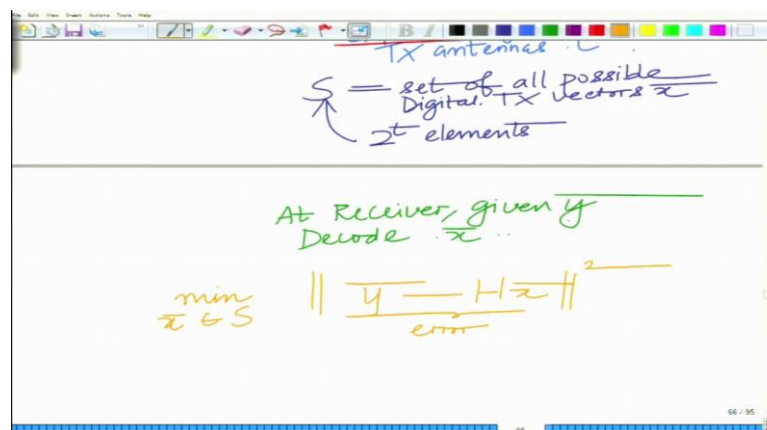 File Edit View Insert Actions Tools Help
TX antennas. t.
S = set of all possible
Digital. TX vectors x̄
2^t elements
At Receiver, given ȳ
Decode x̄ ..
min ‖ ȳ — Hx̄ ‖²
x̄ ∈ S
error
66 / 95
66